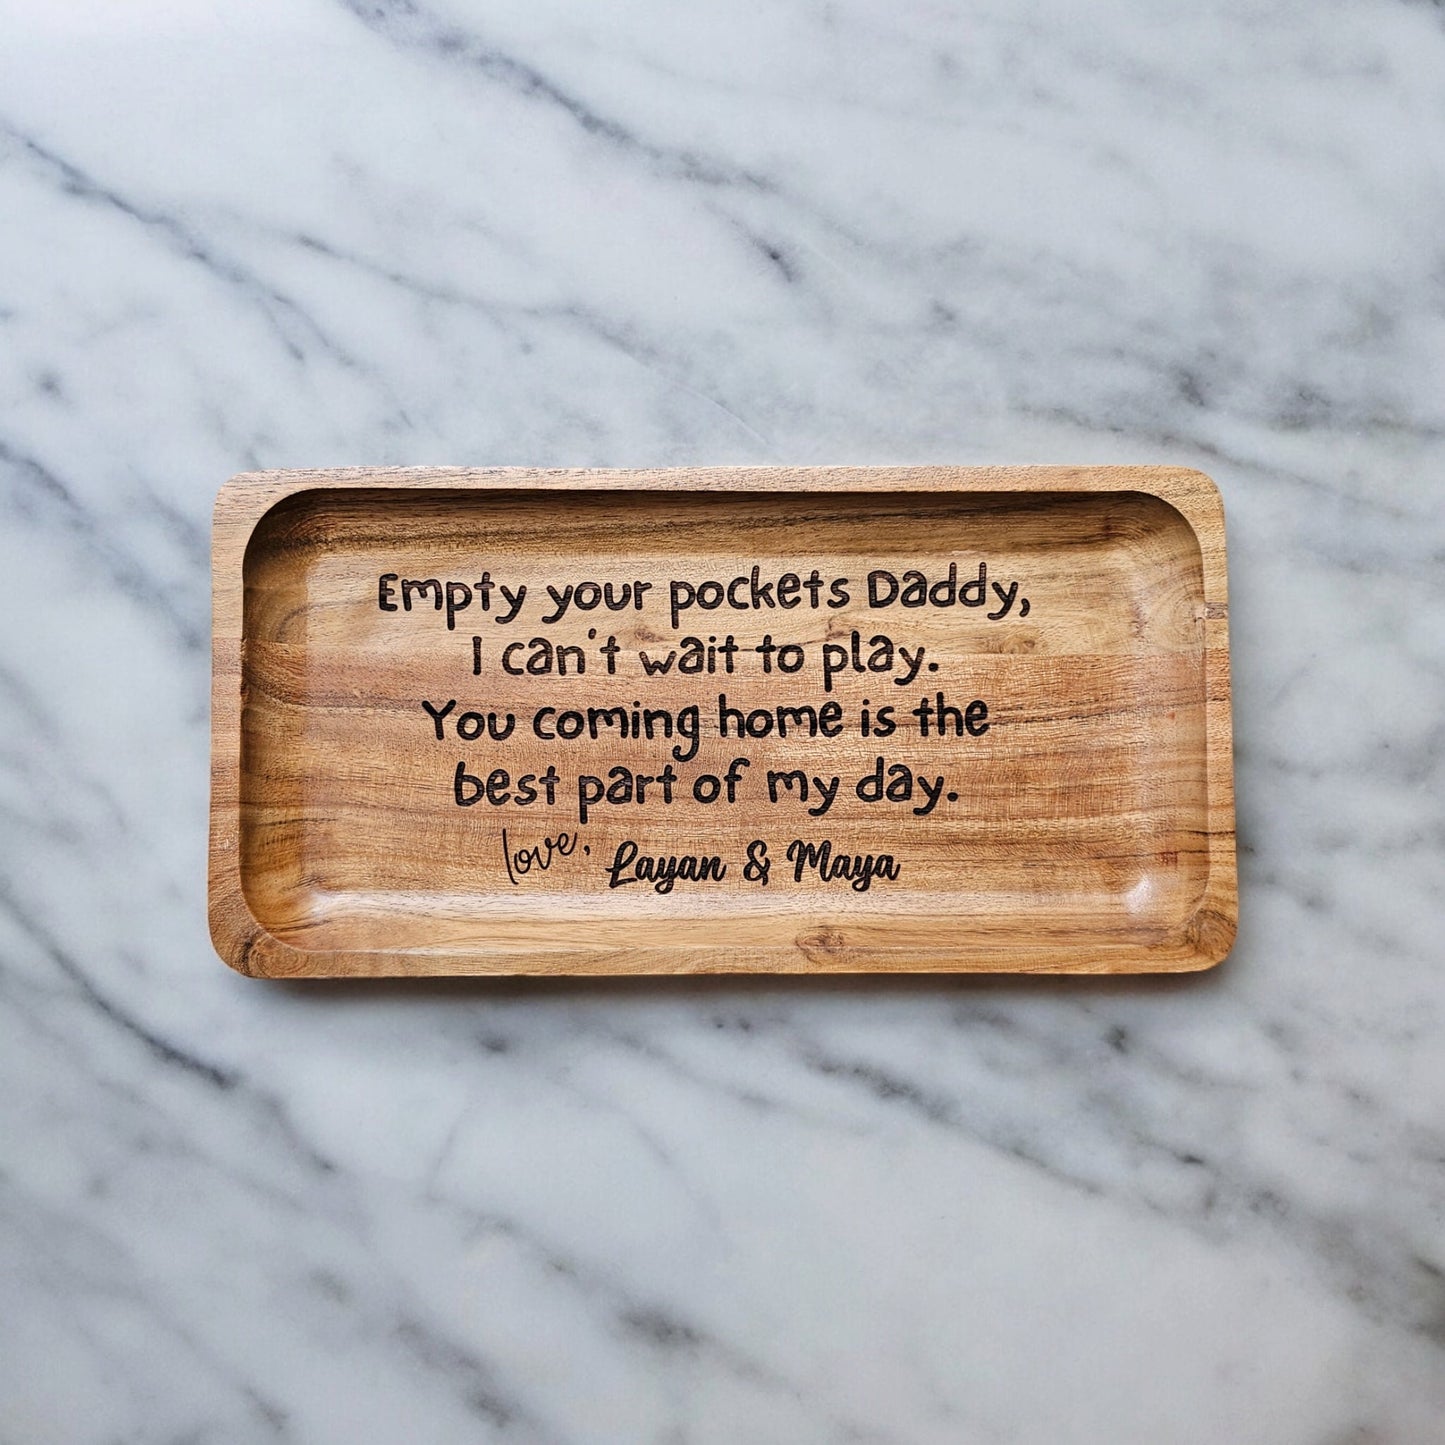 Empty your pockets Daddy,
I can't wait to play.
You coming home is the
best part of my day.
love, Layan & Maya